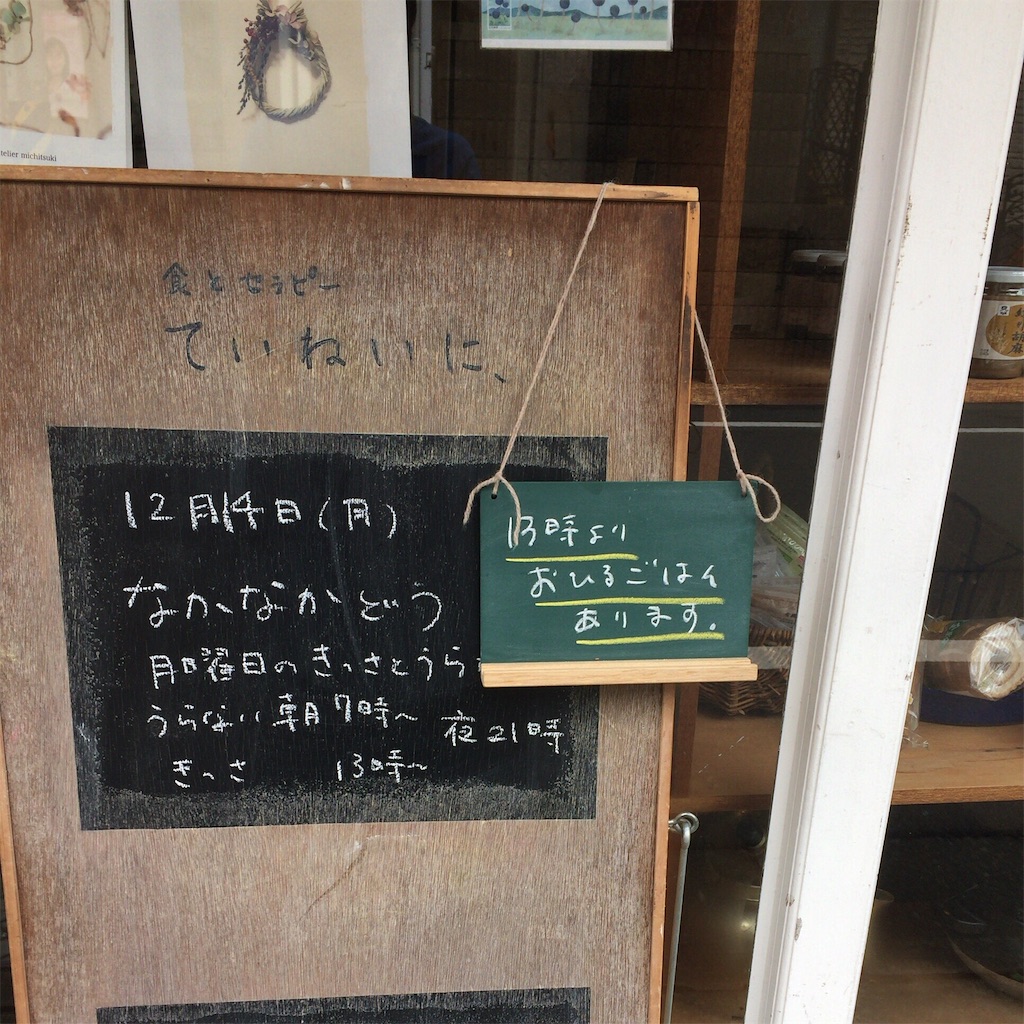 atelier michitsuki
食とセラピー
ていねいに、
12月14日(月)
なかなかどう
月曜日のきっさとうら
うらない朝7時~ 夜21時
きっさ 13時~
13時より
おひるごはん
あります。